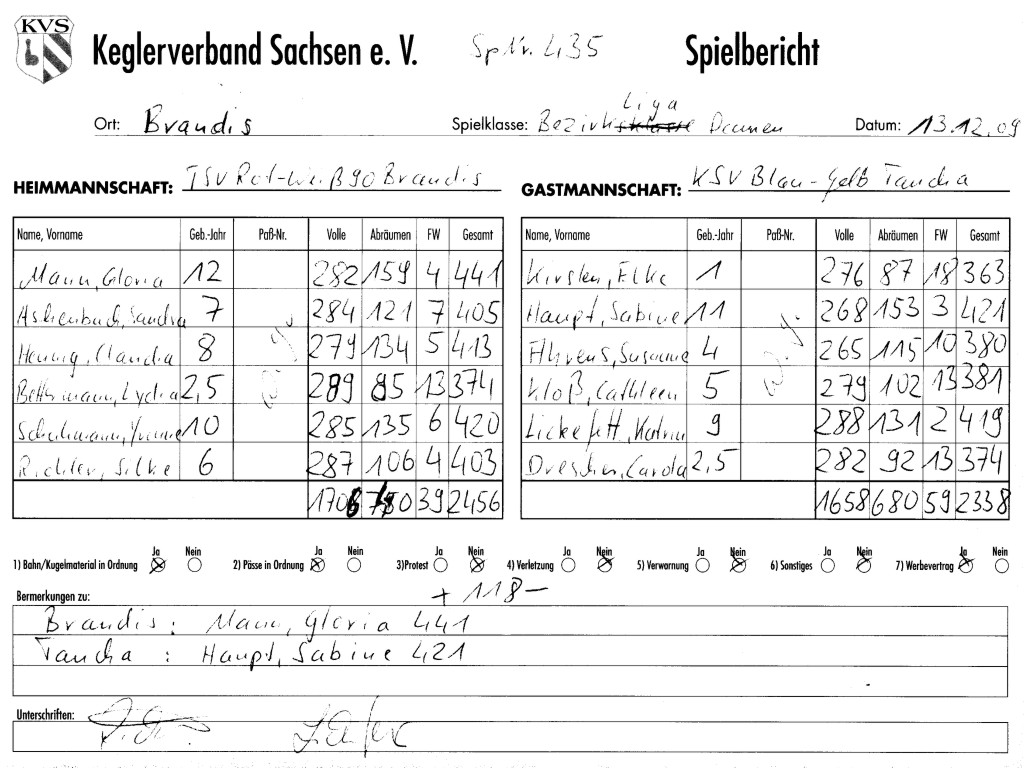 KVS
Keglerverband Sachsen e. V. Sp Nr. 435 Spielbericht
Liga
Ort: Brandis Spielklasse: Bezirksklasse Damen Datum: 13.12.09
HEIMMANNSCHAFT: TSV Rot-Weiß 90 Brandis GASTMANNSCHAFT: KSV Blau-Gelb Taucha
Name, Vorname Geb.-Jahr Paß-Nr. Volle Abräumen FW Gesamt Name, Vorname Geb.-Jahr Paß-Nr. Volle Abräumen FW Gesamt
Mann, Gloria 12 282 159 4 441 Kirsten, Elke 1 276 87 18 363
Aschenbach, Sandra 7 284 121 7 405 Haupt, Sabine 11 268 153 3 421
Hennig, Claudia 8 279 134 5 413 Ahrens, Susanne 4 265 115 10 380
Lydia 2,5 289 85 13 374 Kloß, Cathleen 5 279 102 13 381
Schuhmann, Yvonne 10 285 135 6 420 Lickefett, Katrin 9 288 131 2 419
Richter, Silke 6 287 106 4 403 Drescher, Carola 2,5 282 92 13 374
1706 750 39 2456 1658 680 59 2338
Ja Nein Ja Nein Ja Nein Ja Nein Ja Nein Ja Nein Ja Nein
1) Bahn/Kugelmaterial in Ordnung 2) Pässe in Ordnung 3)Protest 4) Verletzung 5) Verwarnung 6) Sonstiges 7) Werbevertrag
Bemerkungen zu: + 118 -
Brandis: Mann, Gloria 441
Taucha : Haupt, Sabine 421
Unterschriften: